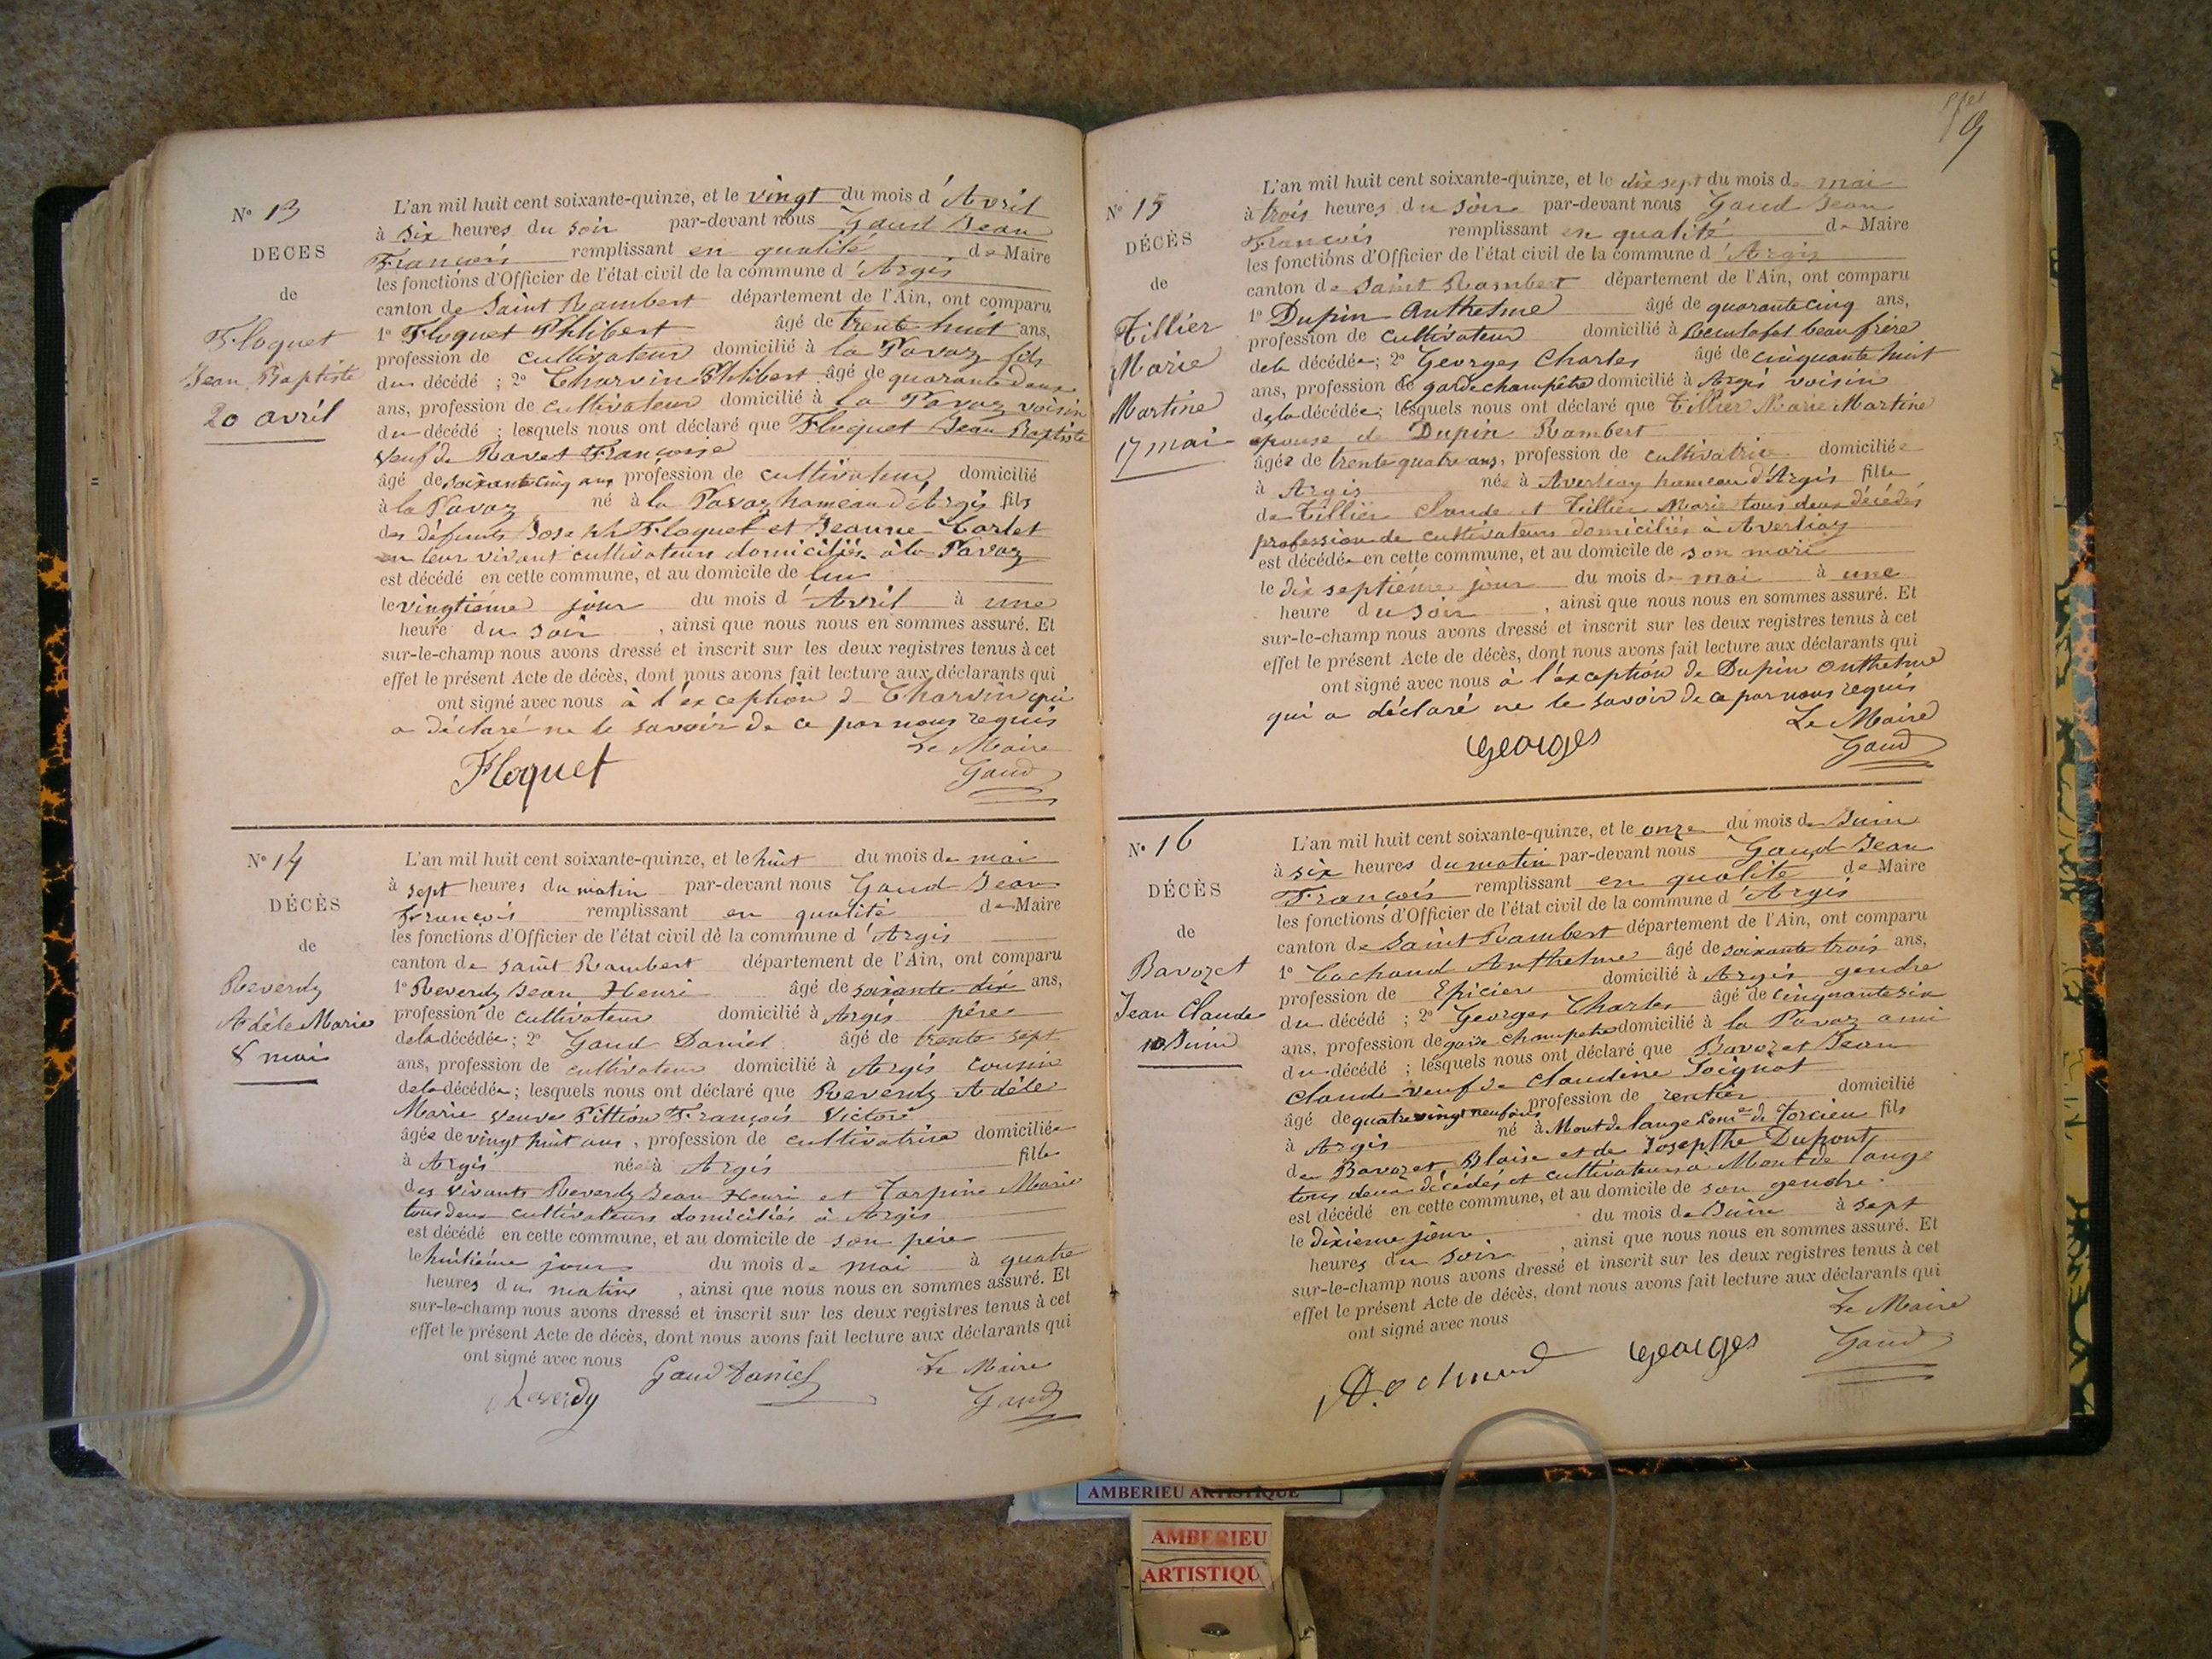 N° 13
DECES
de
Floquet
Jean Baptiste
20 avril
L'an mil huit cent soixante-quinze, et le vingt du mois d'Avril
à six heures du soir par-devant nous Gaud Jean
François remplissant en qualité de Maire
les fonctions d'Officier de l'état civil de la commune d'Argis
canton de Saint Rambert département de l'Ain, ont comparu
1° Floquet Philibert âgé de trente huit ans,
profession de cultivateur domicilié à la Pavaz fils
du décédé ; 2° Charvin Philibert âgé de quarante deux
ans, profession de cultivateur domicilié à la Pavaz voisin
du décédé ; lesquels nous ont déclaré que Floquet Jean Baptiste
veuf de Ravet Françoise
âgé de soixante cinq ans profession de cultivateur domicilié
à la Pavaz né à la Pavaz hameau d'Argis fils
des défunts Joseph Floquet et Jeanne Carlet
en leur vivant cultivateurs domiciliés à la Pavaz
est décédé en cette commune, et au domicile de lui
le vingtième jour du mois d'Avril à une
heure du soir , ainsi que nous nous en sommes assuré. Et
sur-le-champ nous avons dressé et inscrit sur les deux registres tenus à cet
effet le présent Acte de décès, dont nous avons fait lecture aux déclarants qui
ont signé avec nous à l'exception de Charvin qui
a déclaré ne le savoir de ce par nous requis
Le Maire
Floquet Gaud
N° 14
DÉCÈS
de
Reverdy
Adèle Marie
8 mai
L'an mil huit cent soixante-quinze, et le huit du mois de mai
à sept heures du matin par-devant nous Gaud Jean
François remplissant en qualité de Maire
les fonctions d'Officier de l'état civil de la commune d'Argis
canton de saint Rambert département de l'Ain, ont comparu
1° Reverdy Jean Henri âgé de soixante dix ans,
profession de cultivateur domicilié à Argis père
de la décédée ; 2° Gaud Daniel âgé de trente sept
ans, profession de cultivateur domicilié à Argis cousin
de la décédée ; lesquels nous ont déclaré que Reverdy Adèle
Marie veuve Pittion François Victore
âgée de vingt huit ans , profession de cultivatrice domiciliée
à Argis née à Argis fille
des vivants Reverdy Jean Henri et Tarpine Marie
tous deux cultivateurs domiciliés à Argis
est décédé en cette commune, et au domicile de son père
le huitième jour du mois de mai à quatre
heures du matin , ainsi que nous nous en sommes assuré. Et
sur-le-champ nous avons dressé et inscrit sur les deux registres tenus à cet
effet le présent Acte de décès, dont nous avons fait lecture aux déclarants qui
ont signé avec nous Le Maire
Reverdy Gaud Daniel Gaud
N° 15
DÉCÈS
de
Tillier
Marie
Martine
17 mai
L'an mil huit cent soixante-quinze, et le dix sept du mois de mai
à trois heures du soir par-devant nous Gaud Jean
François remplissant en qualité de Maire
les fonctions d'Officier de l'état civil de la commune d'Argis
canton de Saint Rambert département de l'Ain, ont comparu
1° Dupin Anthelme âgé de quarante cinq ans,
profession de cultivateur domicilié à beau frère
de la décédée ; 2° Georges Charles âgé de cinquante huit
ans, profession de garde champêtre domicilié à Argis voisin
de la décédée ; lesquels nous ont déclaré que Tillier Marie Martine
épouse de Dupin Rambert
âgée de trente quatre ans, profession de cultivatrice domiciliée
à Argis née à Averliaz hameau d'Argis fille
de Tillier Claude et Tillier Marie tous deux décédés
profession de cultivateurs domiciliés à Averliaz
est décédée en cette commune, et au domicile de son mari
le dix septième jour du mois de mai à une
heure du soir , ainsi que nous nous en sommes assuré. Et
sur-le-champ nous avons dressé et inscrit sur les deux registres tenus à cet
effet le présent Acte de décès, dont nous avons fait lecture aux déclarants qui
ont signé avec nous à l'exception de Dupin Anthelme
qui a déclaré ne le savoir de ce par nous requis
Le Maire
Georges Gaud
N° 16
DÉCÈS
de
Bavozet
Jean Claude
10 Juin
L'an mil huit cent soixante-quinze, et le onze du mois de Juin
à six heures du matin par-devant nous Gaud Jean
François remplissant en qualité de Maire
les fonctions d'Officier de l'état civil de la commune d'Argis
canton de Saint Rambert département de l'Ain, ont comparu
1° Cochaud Anthelme âgé de soixante trois ans,
profession de Epicier domicilié à Argis gendre
du décédé ; 2° Georges Charles âgé de cinquante six
ans, profession de garde champetre domicilié à la Pavaz ami
du décédé ; lesquels nous ont déclaré que Bavozet Jean
Claude veuf de Claudine Poignat
âgé de quatre vingt neuf ans profession de rentier domicilié
à Argis né à Mont de lange Com.ne de Torcieu fils
de Bavozet Blaise et de Josepthe Dupont
tous deux décédés et cultivateurs a Mont de lange
est décédé en cette commune, et au domicile de son gendre.
le dixième jour du mois de Juin à sept
heures du soir , ainsi que nous nous en sommes assuré. Et
sur-le-champ nous avons dressé et inscrit sur les deux registres tenus à cet
effet le présent Acte de décès, dont nous avons fait lecture aux déclarants qui
ont signé avec nous Le Maire
Georges Gaud
AMBERIEU ARTISTIQUE
AMBERIEU
ARTISTIQU